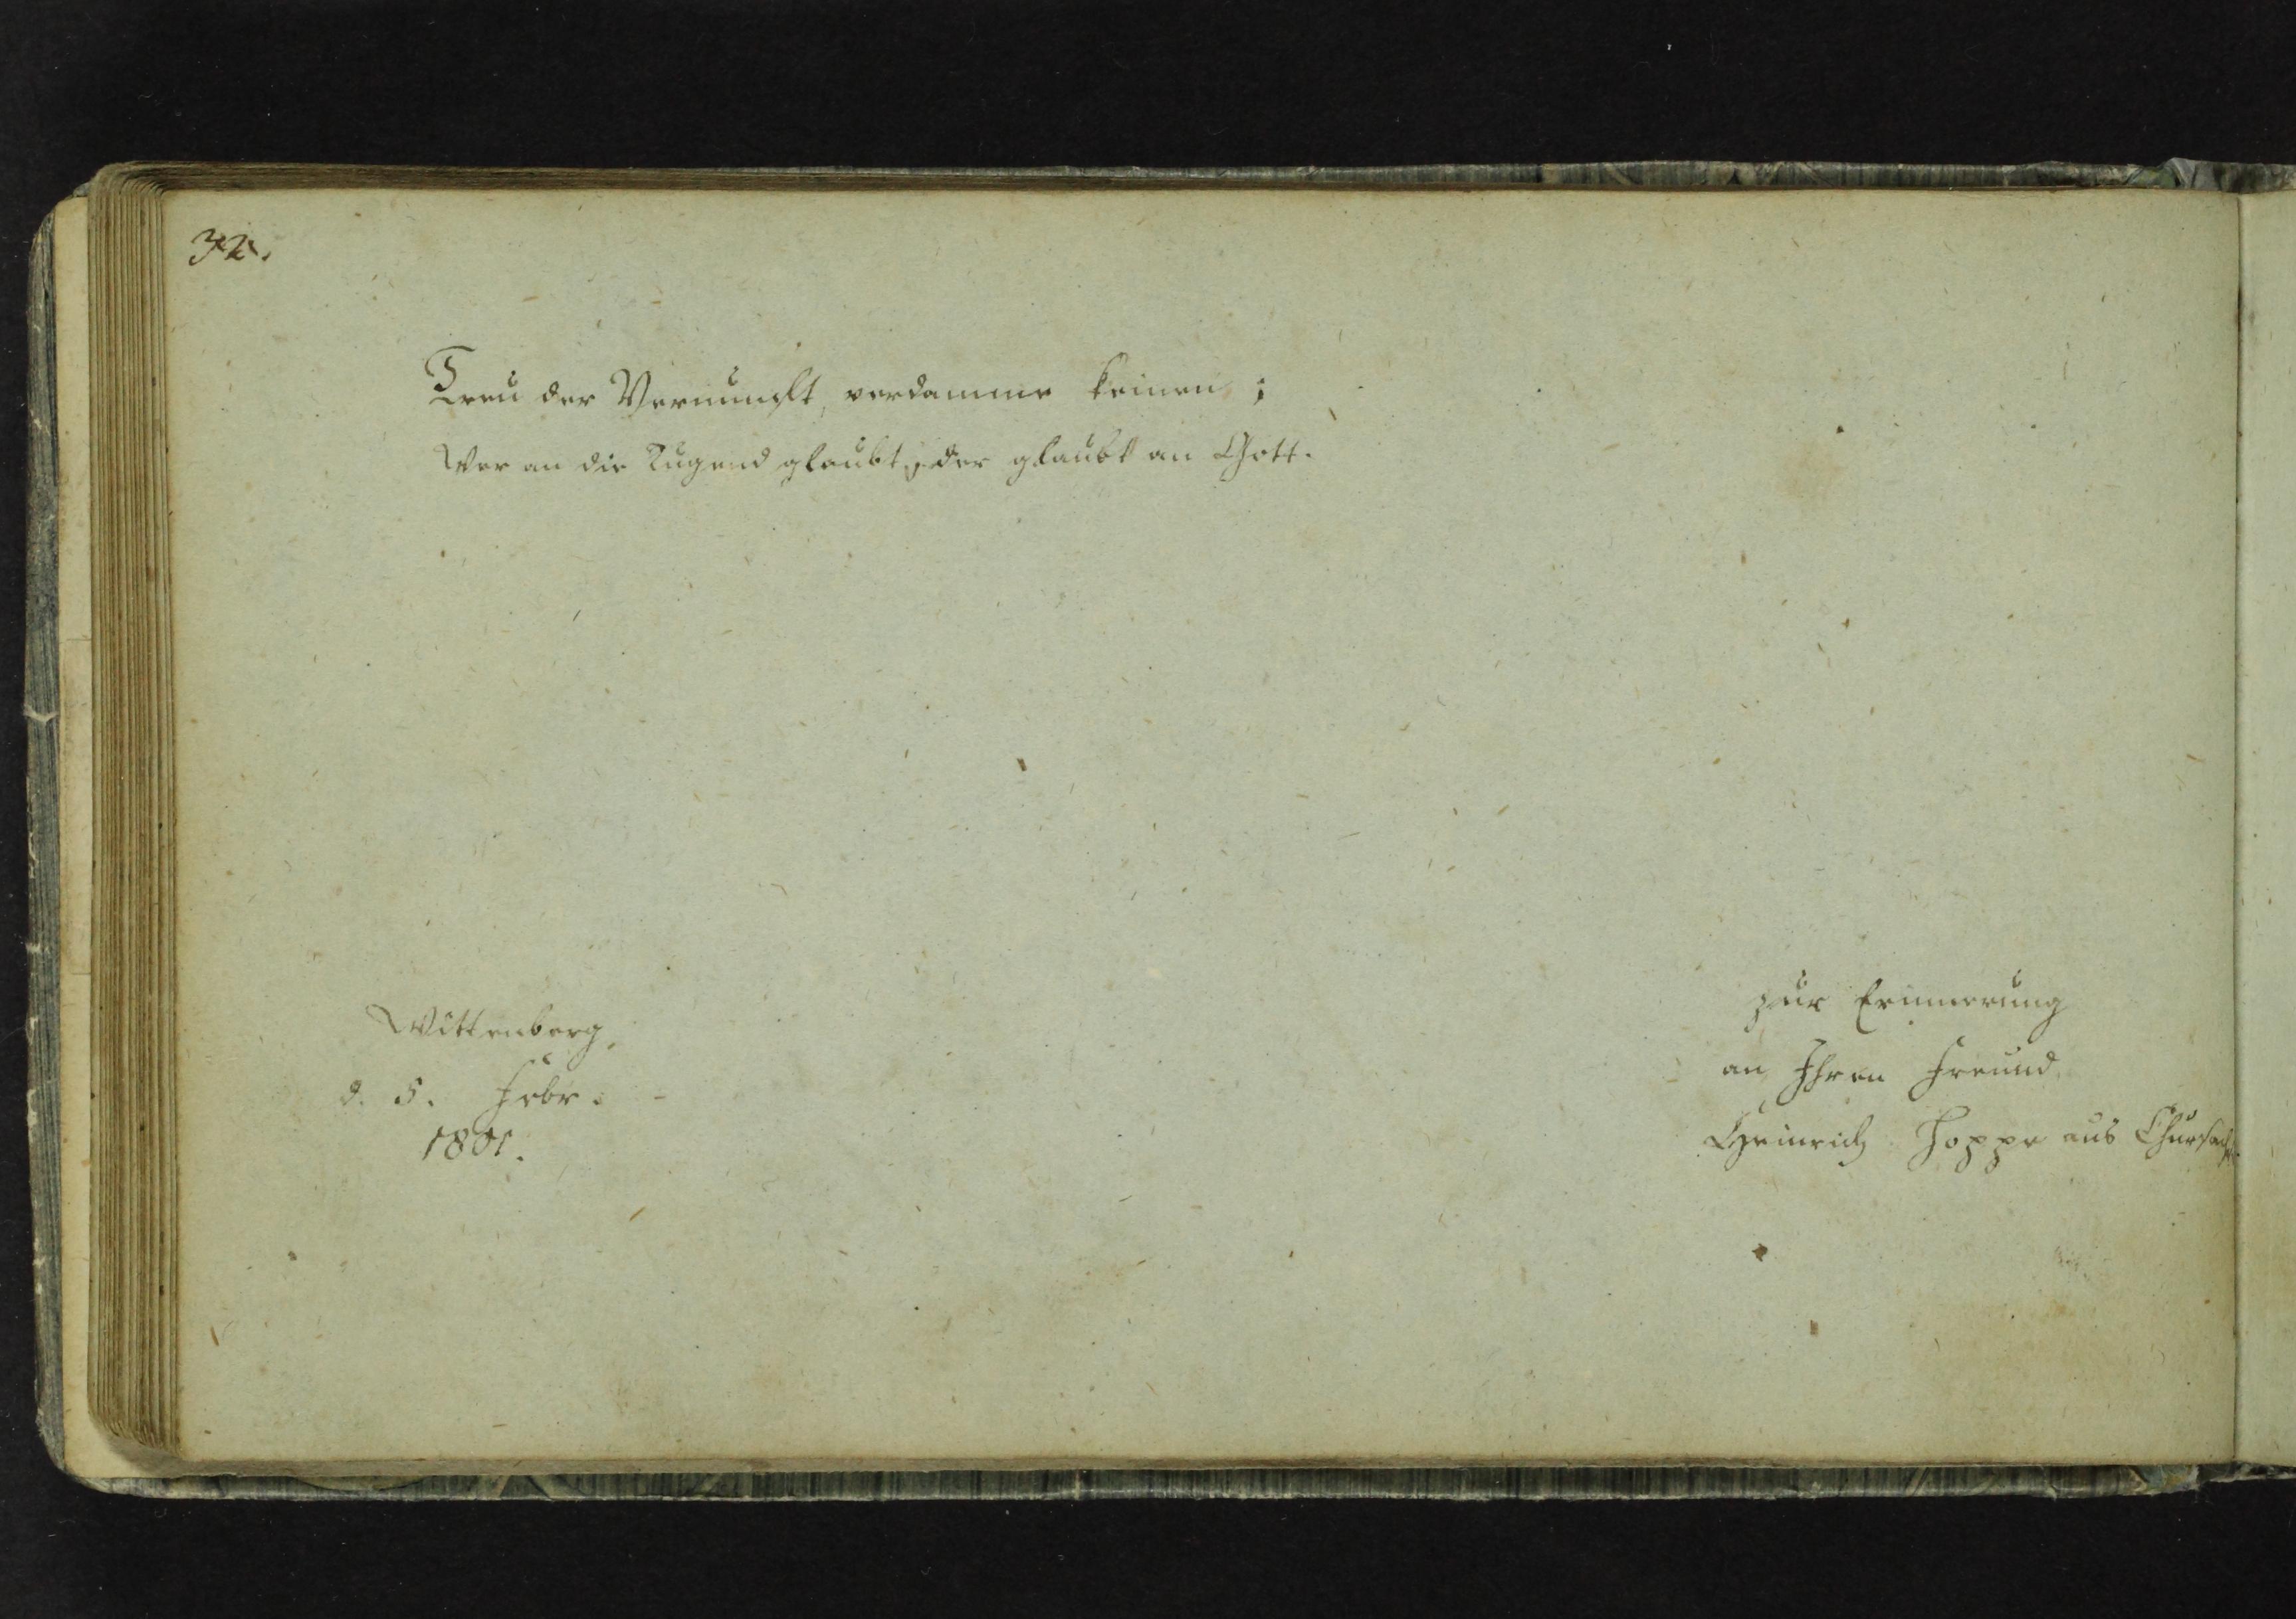 32.
Treu der Vernunft, verdamme keinen;
Wer an die Tugend glaubt, der glaubt an Gott.
Wittenberg,
d. 5. Febr.
1801.
zur Erinnerung
an Ihren Freund
Heinrich Hoppe aus Chursachs.